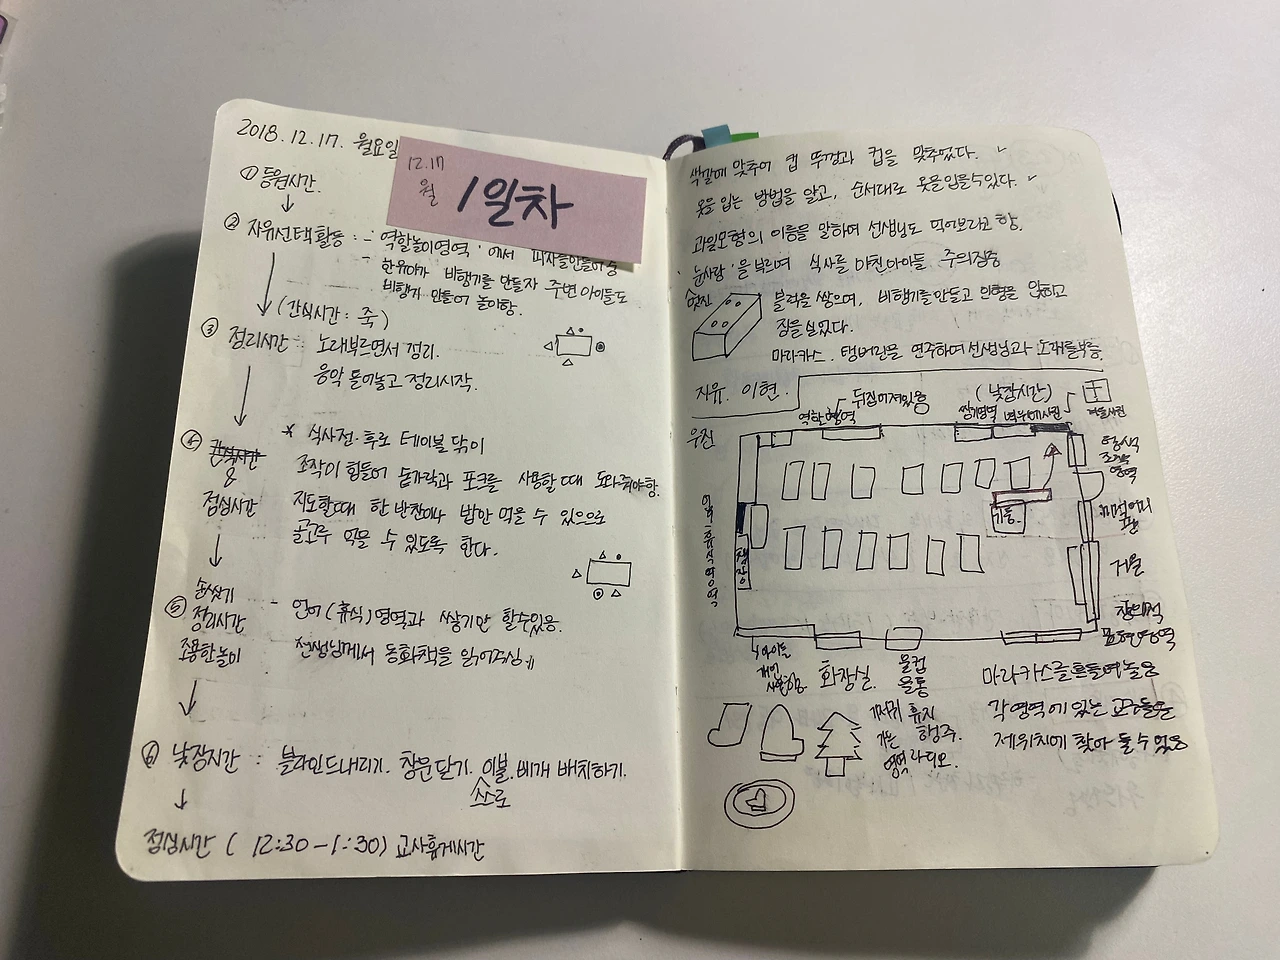 2018. 12. 17. 월요일
12.17
월
1일차
① 등원시간.
② 자유선택활동 : - '역할놀이영역'에서 피자를만들어
- 한유아가 비행기를 만들자 주변 아이들도
비행기 만들어 놀이함.
(간식시간 : 죽)
③ 정리시간 : 노래부르면서 정리.
음악 틀어놓고 정리시작.
④ 간식시간
&
점심시간
* 식사전·후로 테이블 닦이
조작이 힘들어 숟가락과 포크를 사용할때 도와줘야함.
지도할때 한 반찬이나 밥만 먹을 수 있으므로
골고루 먹을 수 있도록 한다.
⑤ 손씻기
정리시간
조용한놀이
- 언어(휴식)영역과 쌓기만 할수있음.
선생님께서 동화책을 읽어주심
⑥ 낮잠시간 : 블라인드내리기. 창문닫기. 이불.베개 배치하기.
스스로
점심시간 ( 12:30 - 1:30) 교사휴게시간
색깔에 맞추어 컵 뚜껑과 컵을 맞추었다.
옷을 입는 방법을 알고, 순서대로 옷을입을수있다.
과일모형의 이름을 말하며 선생님도 먹어보라고 함.
'눈사람'을 부르며 식사를 마친아이들 주의집중
블럭을 쌓으며, 비행기를 만들고 인형을 앉히고
짐을 실었다.
마라카스. 탬버린을 연주하며 선생님과 노래를부름.
자유. 이현.
뒤집어져있음
(낮잠시간)
역할영역
쌓기영역
우진
조작
영역
기둥
거울
창의적
표현영역
아이들
개인
사물함.
화장실.
물컵
물통
마라카스를흔들며놀음
각영역에 있는 교구들을
제위치에 찾아 둘 수 있음
기저귀 휴지
가는 행주.
영역 라디오.